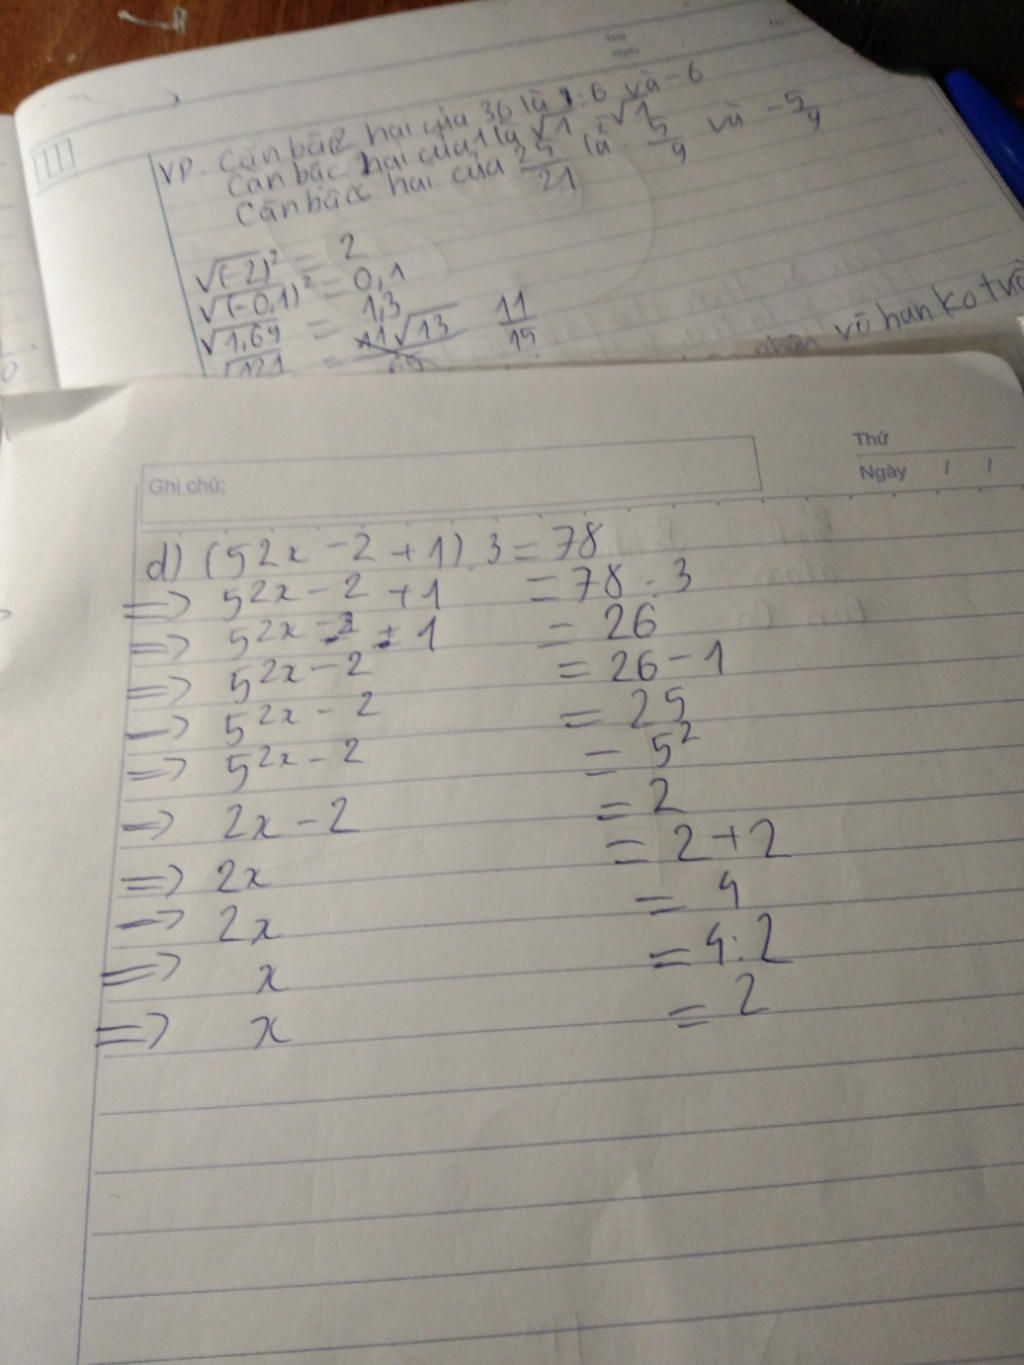 Thứ
Ngày
VD. Căn bậc hai của 36 là : 6 và -6
Căn bậc hai của 1 là √1 √1
Căn bậc hai của 25/21 là 5/9 và -5/9
√(-2)² = 2
√(-0,1)² = 0,1
√1,69 = 1,3
√121 = 11/15
vô hạn ko
Thứ
Ghi chú:
Ngày / /
d) (5^2x - 2 + 1) . 3 = 78
=> 5^2x - 2 + 1 = 78 : 3
=> 5^2x - 2 + 1 = 26
=> 5^2x - 2 = 26 - 1
=> 5^2x - 2 = 25
=> 5^2x - 2 = 5²
=> 2x - 2 = 2
=> 2x = 2 + 2
=> 2x = 4
=> x = 4 : 2
=> x = 2